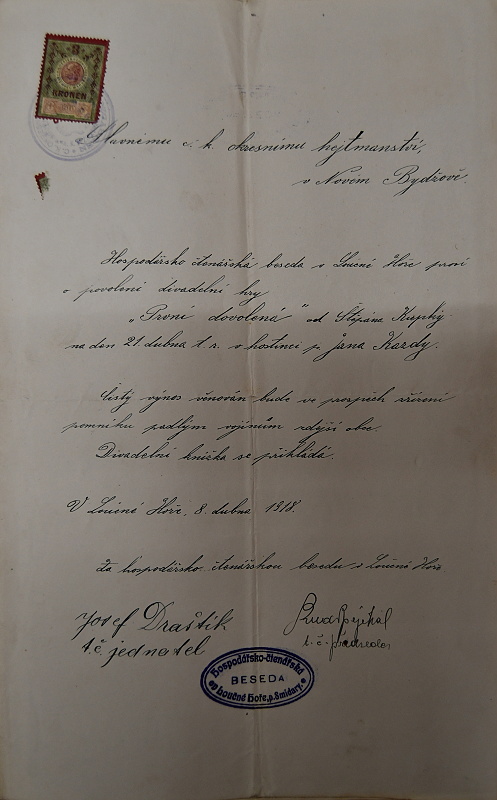 3
KRONEN
Slavnému c. k. okresnímu hejtmanství,
v Novém Bydžově.
Hospodářsko čtenářská beseda v Loučné Hoře prosí
o povolení divadelní hry
„První dovolená" od Štěpána Krupky
na den 21. dubna t. r. v hostinci p. Jana Kazdy.
Čistý výnos věnován bude ve prospěch zřízení
pomníku padlým vojínům zdejší obce.
Divadelní knížka se přikládá.
V Loučné Hoře, 8. dubna 1918.
Za hospodářsko čtenářskou besedu v Loučné Hoře
Josef Draštík
t. č. jednatel
t. č. předseda
Hospodářsko-čtenářská
BESEDA
v Loučné Hoře, p. Smidary.